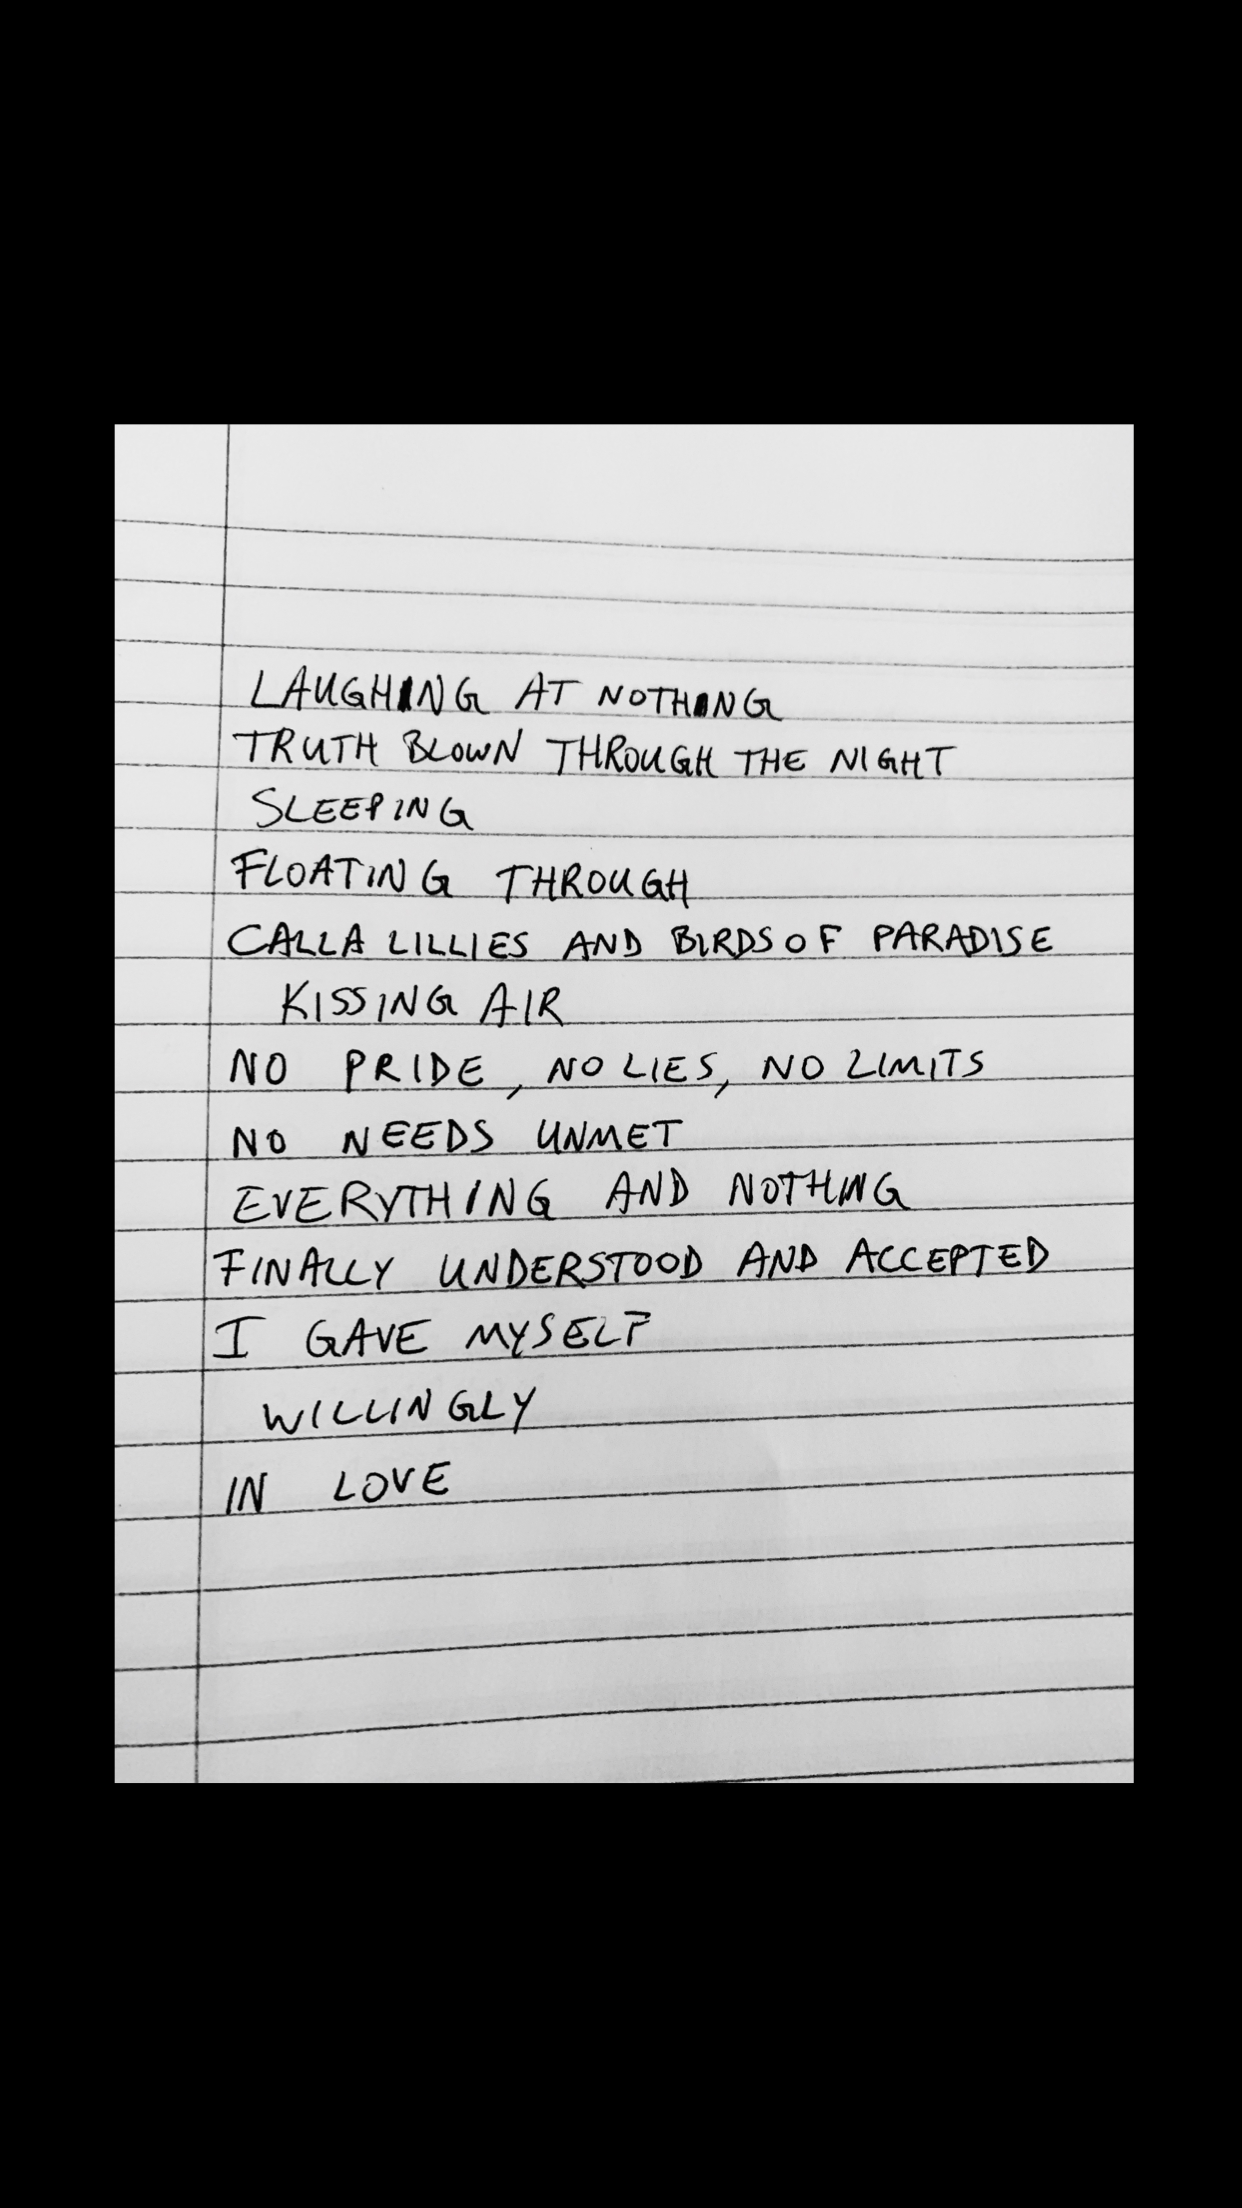 LAUGHING AT NOTHING
TRUTH BLOWN THROUGH THE NIGHT
SLEEPING
FLOATING THROUGH
CALLA LILLIES AND BIRDS OF PARADISE
KISSING AIR
NO PRIDE, NO LIES, NO LIMITS
NO NEEDS UNMET
EVERYTHING AND NOTHING
FINALLY UNDERSTOOD AND ACCEPTED
I GAVE MYSELF
WILLINGLY
IN LOVE